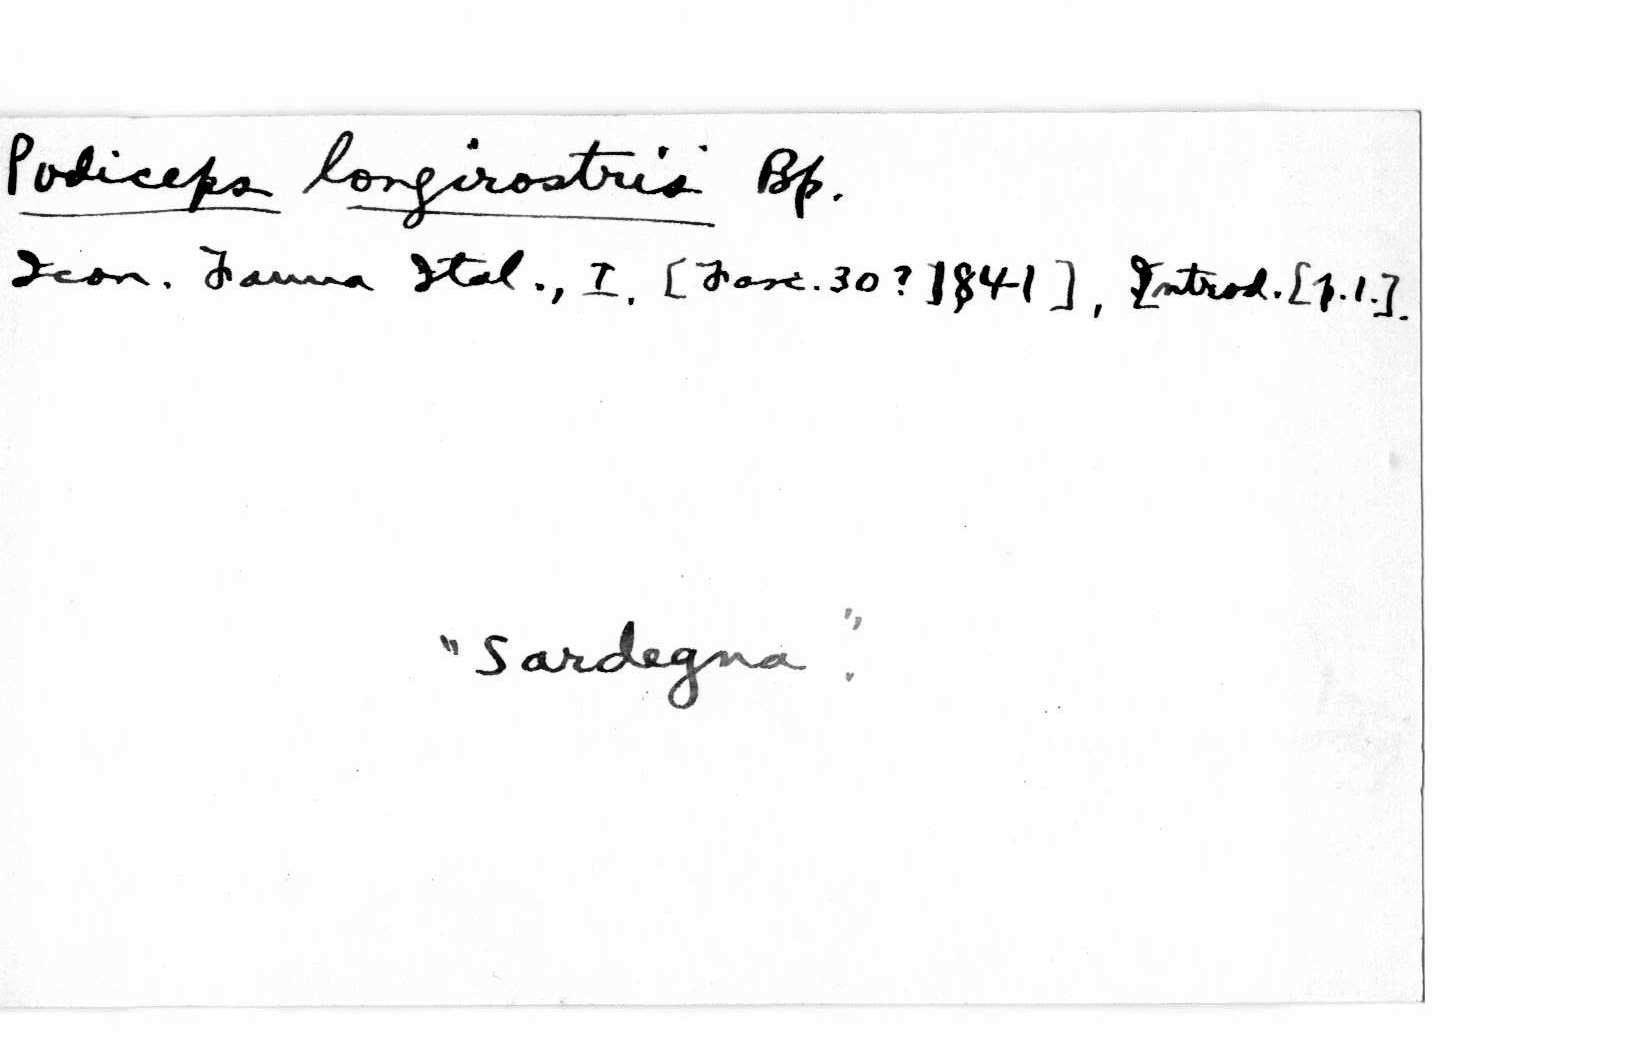 Podiceps longirostris Bp.
Icon. Fauna Ital., I. [Fasc. 30? 1841], Introd. [p.1.].
"Sardegna".